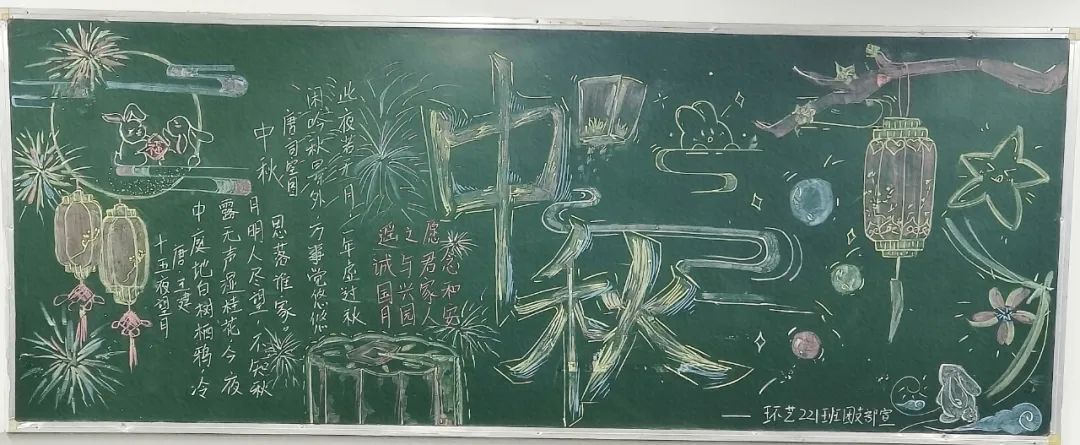 中秋
十五夜望月
唐 王建
中庭地白树栖鸦冷
露无声湿桂花,今夜
月明人尽望,不知秋
思落谁家。
中秋
唐司空图
闲吟秋景外,万事觉悠悠
此夜若无月,一年虚过秋
遥诚国月
之与兴园
愿君家人
念和安
—— 环艺221班团支部宣